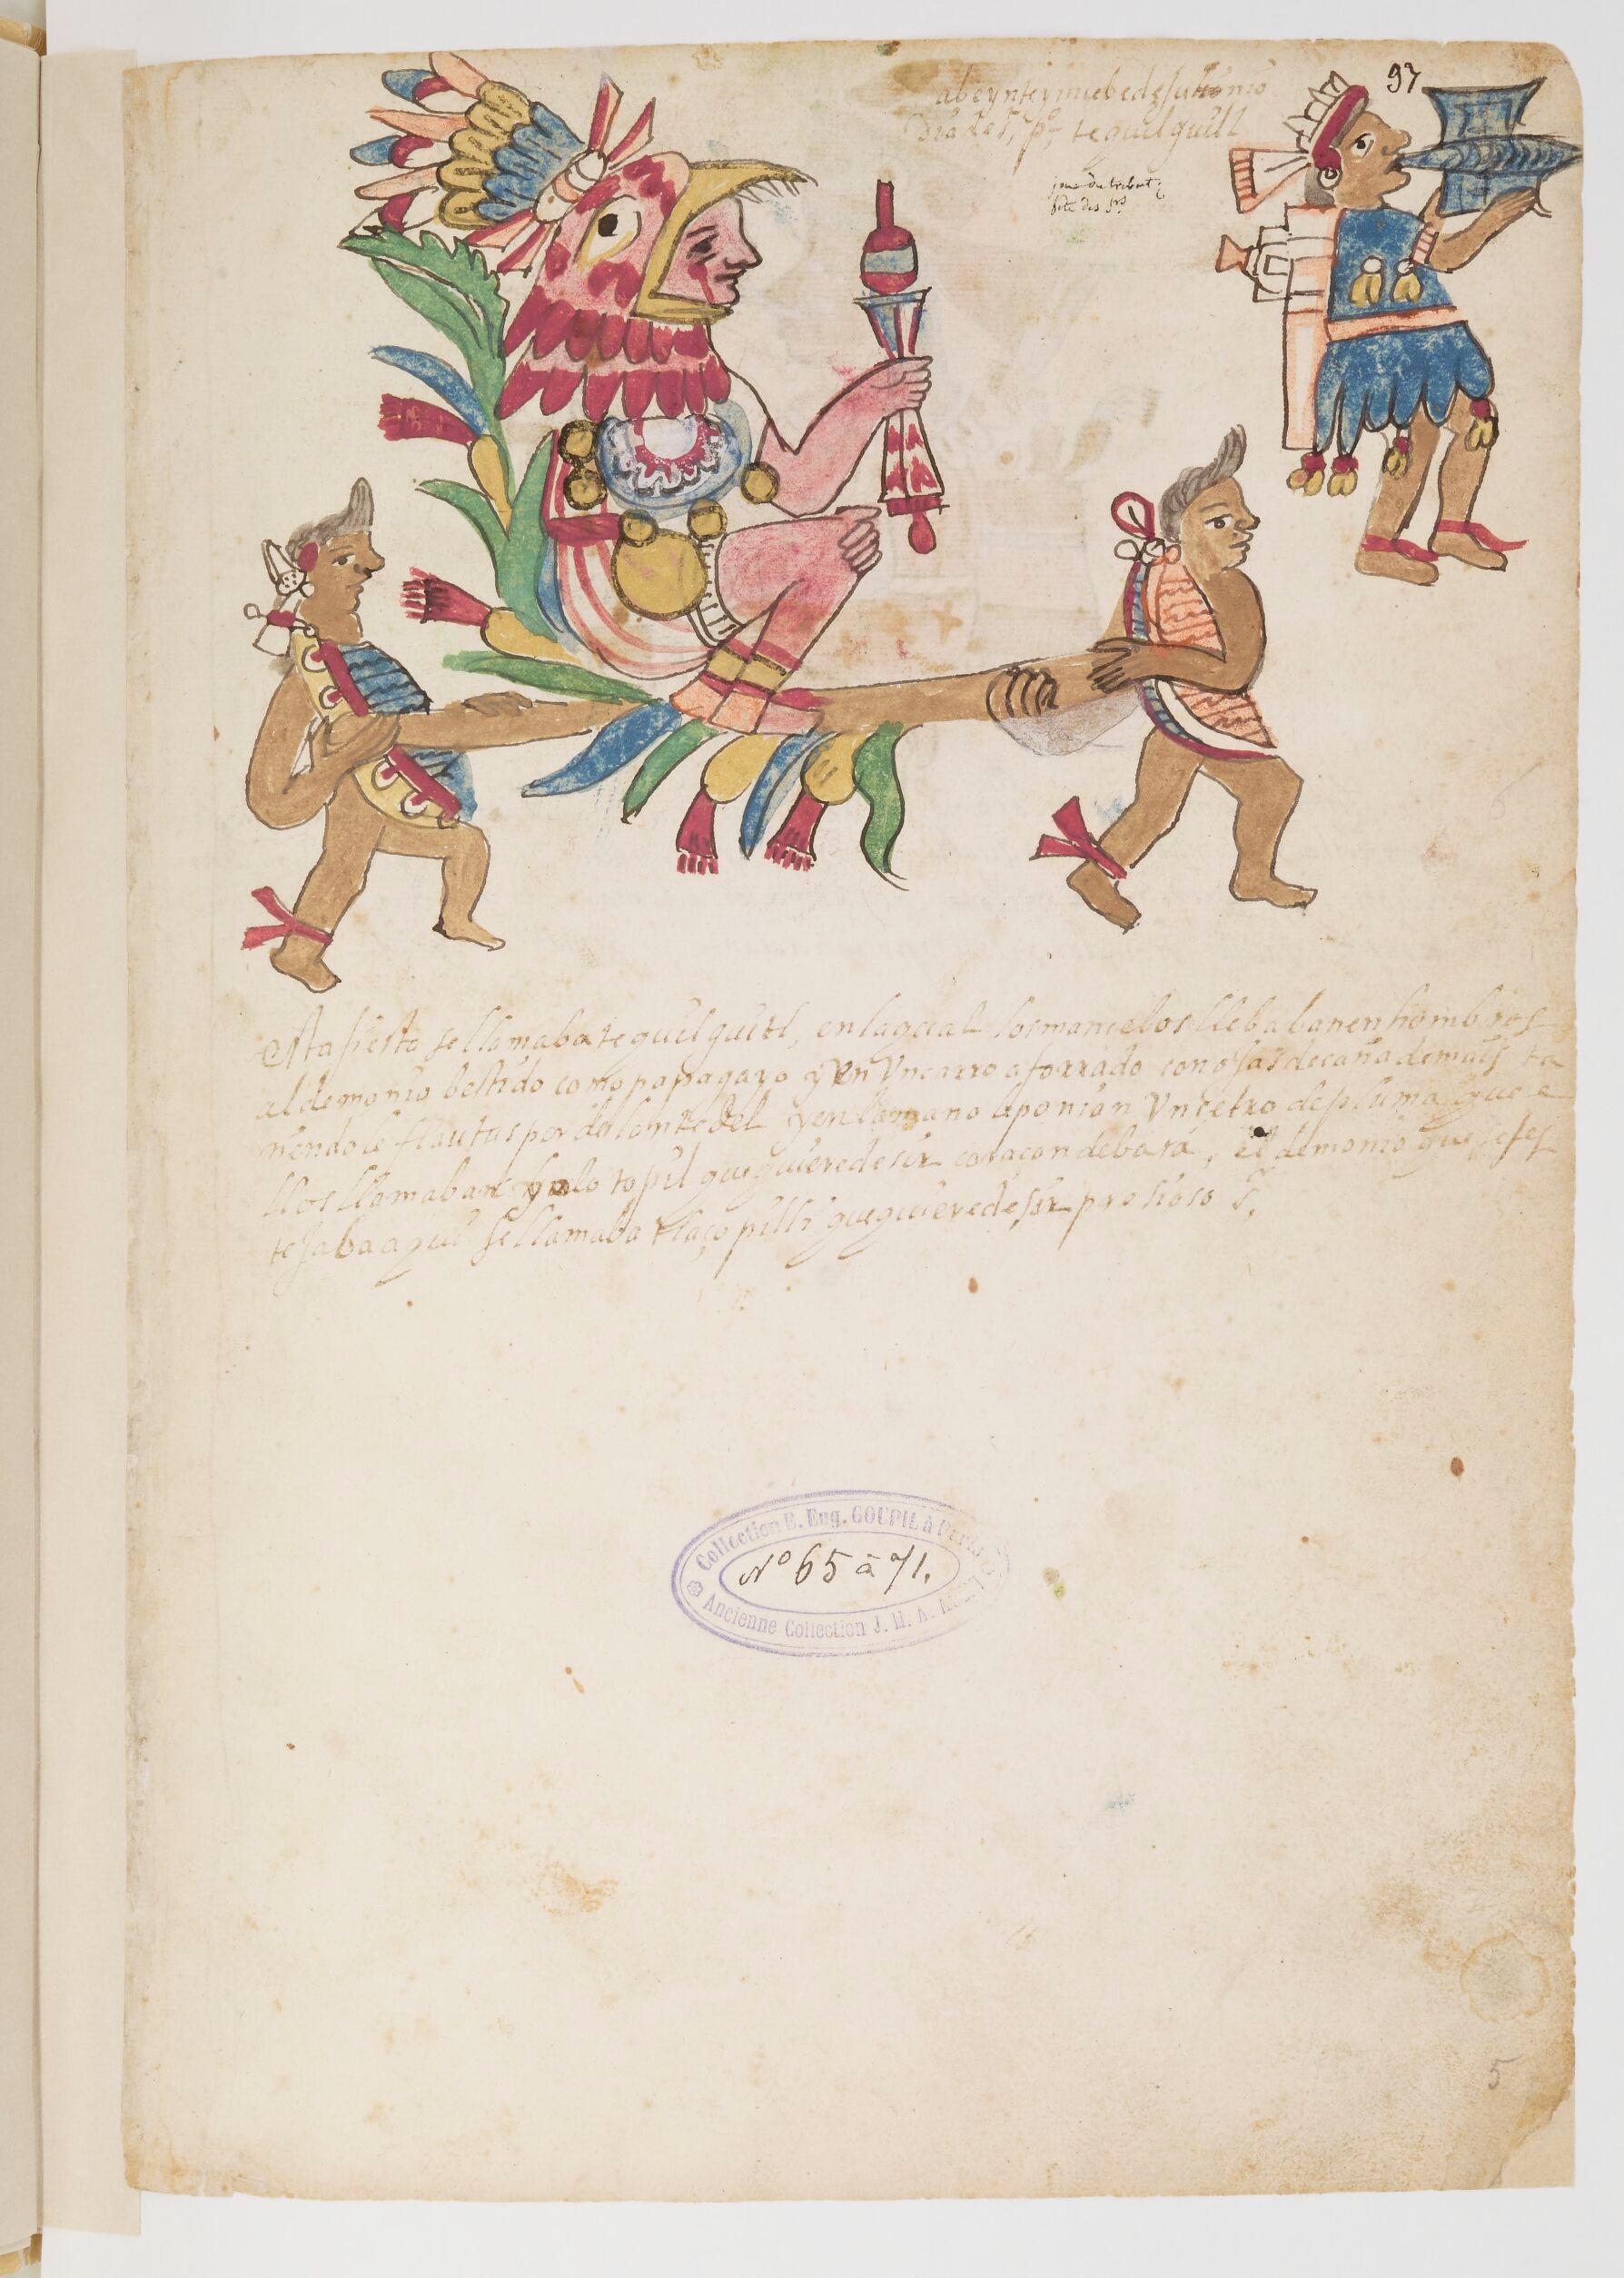 97
a beynte y nuebe de sutionio
Dia de S, pº, tequilguitl
jour du tribut
fete des Srs
Esta fiesta se llamaba tequilguitl, en la qual los mancebos llebaban en hombros
al demonio bestido como papagayo y en Un carro aforrado con ojas de caña de mais ta
niendole flautas por delante del y en la mano le ponian Un cetro de pluma que e
llos llamaban yolo topil que quiere desir coraçon de bara, el demonio que se fes
tesaba aqui se llamaba tlaço pilli que quiere desir presioso S,
Collection E. Eug. GOUPIL à Paris
Nº 65 à 71.
Ancienne Collection J. M. A.
5